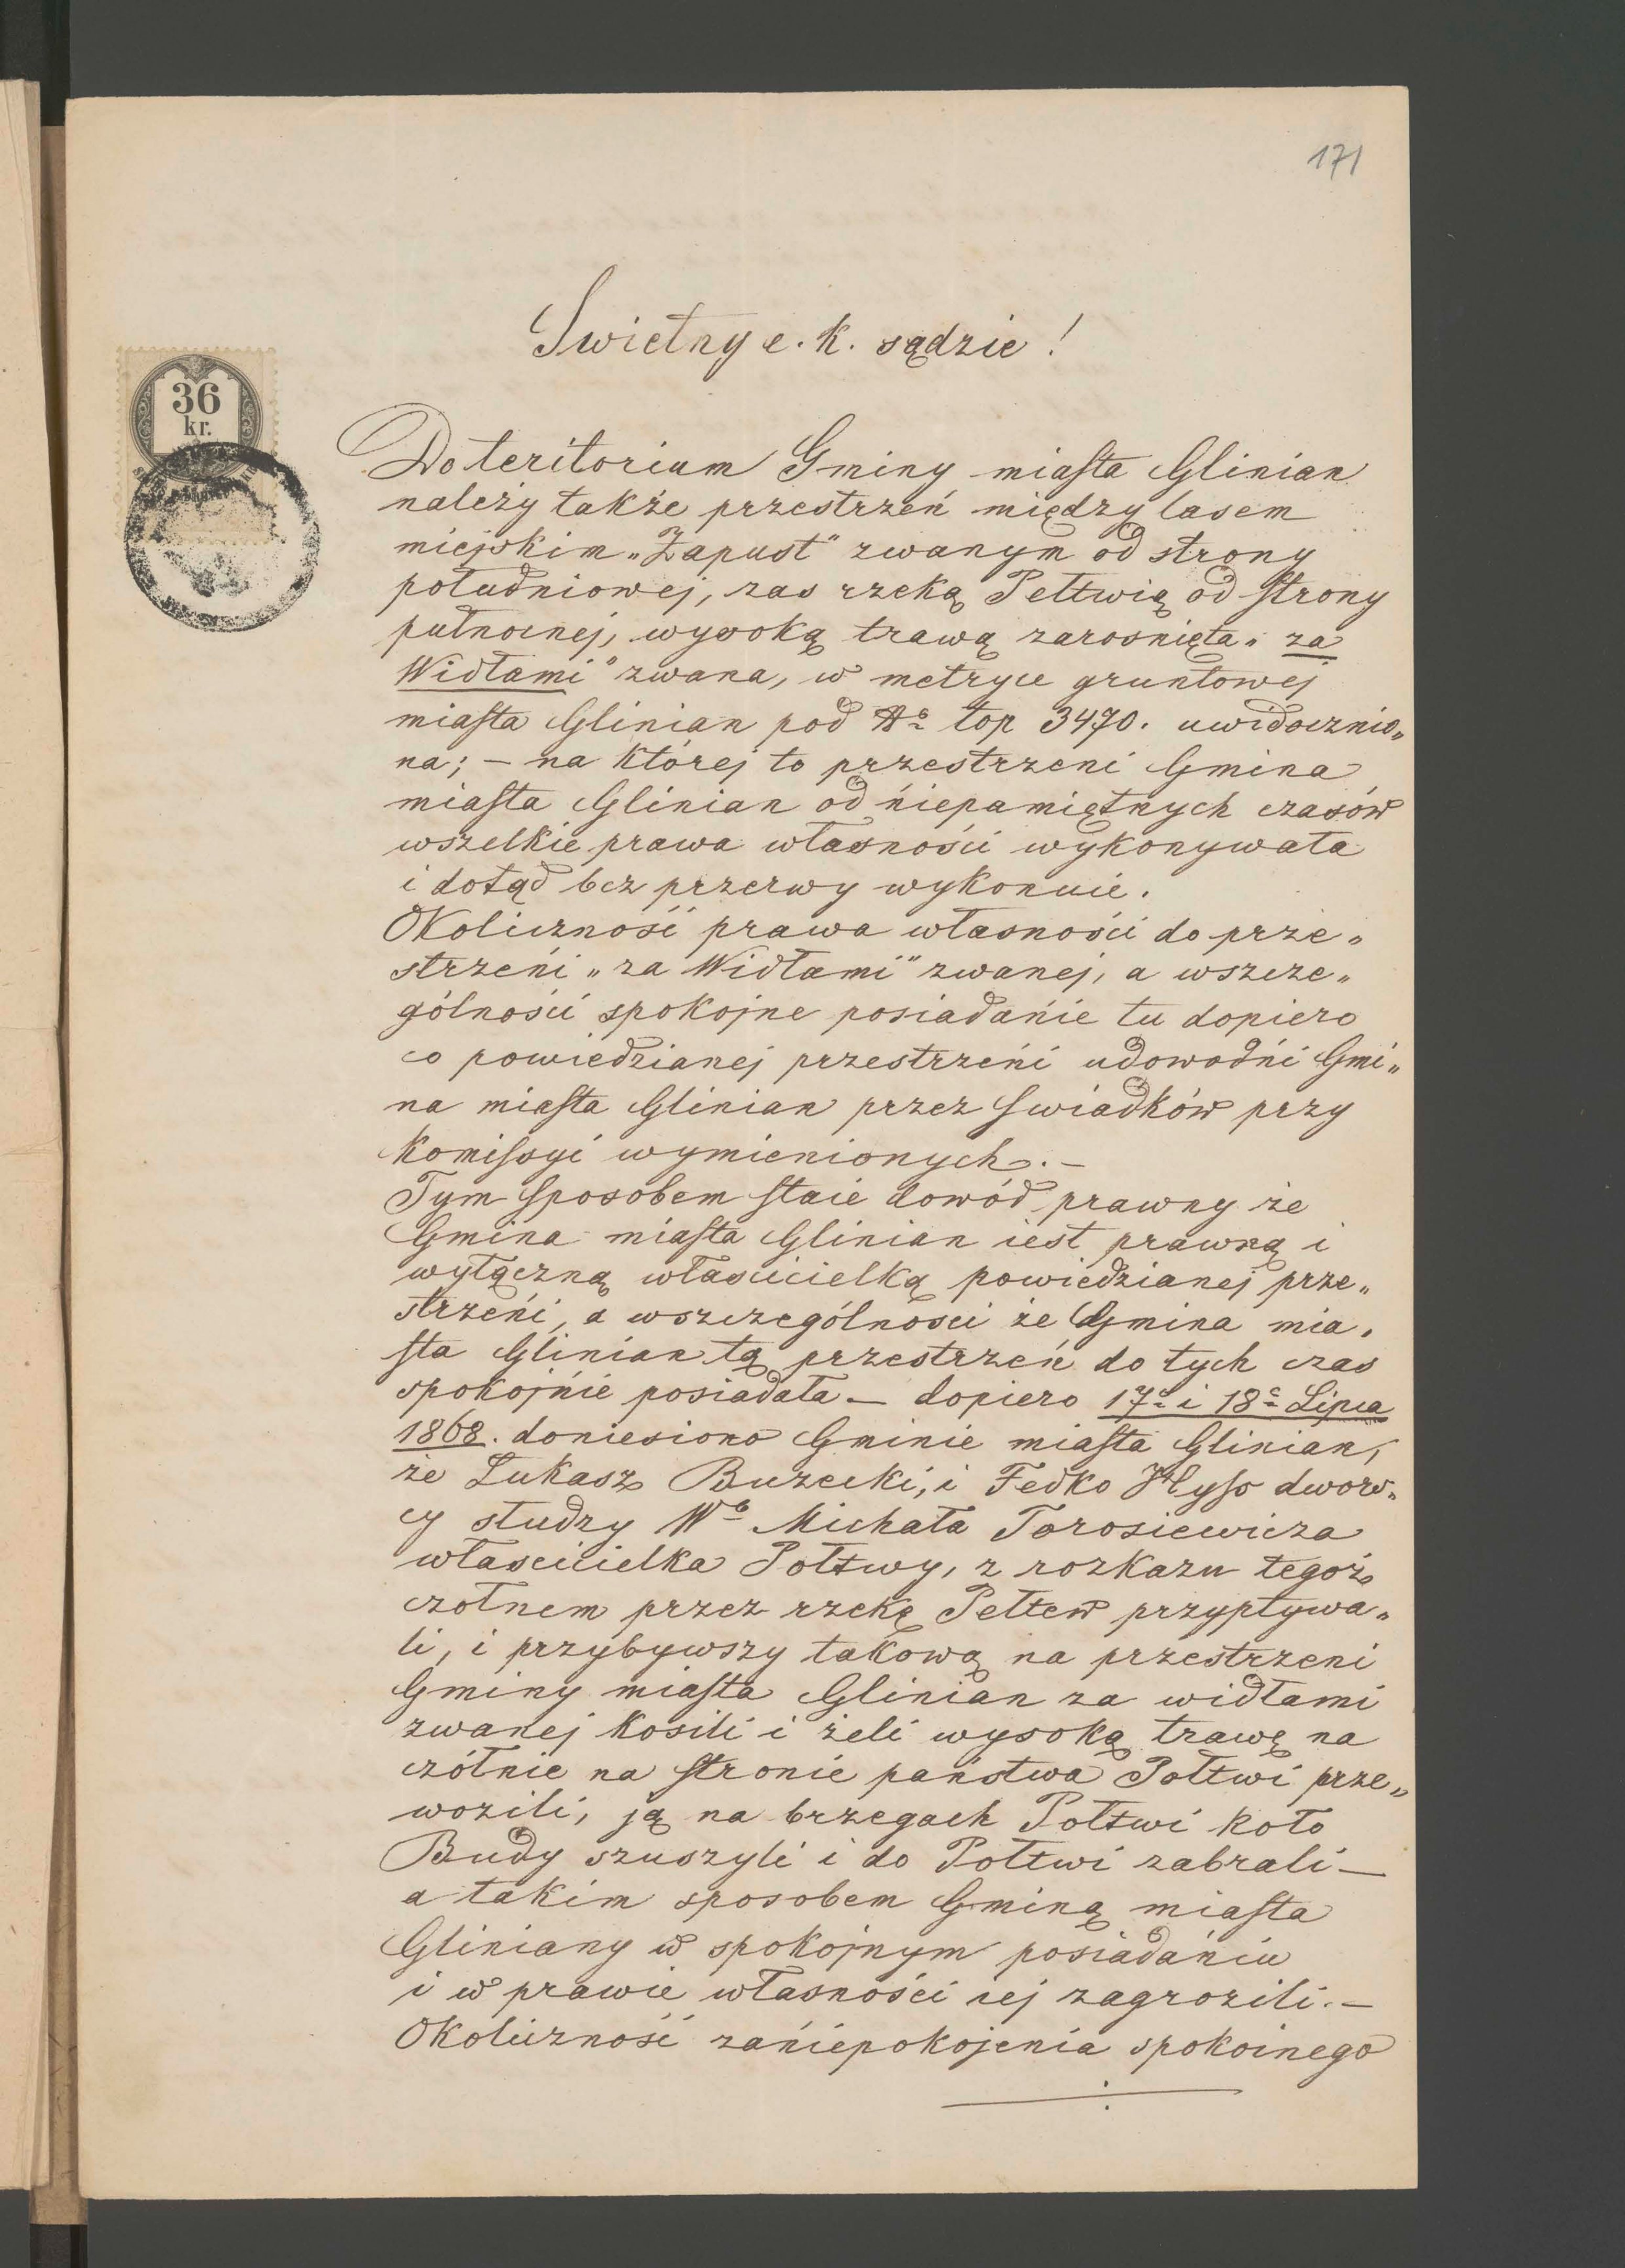 171
Swietny c. k. sądzie!
36
kr.
Do teritorium Gminy miasta Glinian
należy także przestrzeń między lasem
miejskim „Zapust" zwanym od strony
południowej, zas rzeką Pełtwią od strony
pułnocnej, wysoką trawą zarosnięta „za
Widłami" zwana, w metryce gruntowej
miasta Glinian pod No top 3470. uwidocznio„
na; – na której to przestrzeni Gmina
miasta Glinian od niepamiętnych czasów
wszelkie prawa własności wykonywała
i dotąd bez przerwy wykonuie.
Okoliczność prawa własności do prze„
strzeni „za Widłami" zwanej, a wszcze„
gólności spokojne posiadanie tu dopiero
co powiedzianej przestrzeni udowodni Gmi„
na miasta Glinian przez swiadków przy
komisyi wymienionych. –
Tym sposobem staie dowód prawny że
Gmina miasta Glinian iest prawną i
wyłączną włascicielką powiedzianej prze„
strzeni, a wszczególnosci że Gmina mia„
sta Glinian tą przestrzeń do tych czas
spokojnie posiadała – dopiero 17o i 18o Lipca
1868. doniesiono Gminie miasta Glinian,
że Łukasz Buzecki, i Fedko Hyso dwors„
cy słudzy Wo Michała Torosiewicza
włascicielka Połtwy, z rozkazu tegoż
czołnem przez rzekę Pełtew przypływa„
li, i przybywszy takową na przestrzeni
Gminy miasta Glinian za widłami
zwanej kosili i żeli wysoką trawę na
czółnie na stronie państwa Połtwi prze„
wozili, ją na brzegach Połtwi koło
Budy szuszyli i do Połtwi zabrali –
a takim sposobem Gminą miasta
Gliniany w spokojnym posiadaniu
i w prawie własności iej zagrozili. –
Okoliczność zaniepokojenia spokoinego